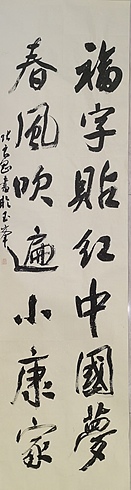 福字貼红中國夢
春風吹遍小康家